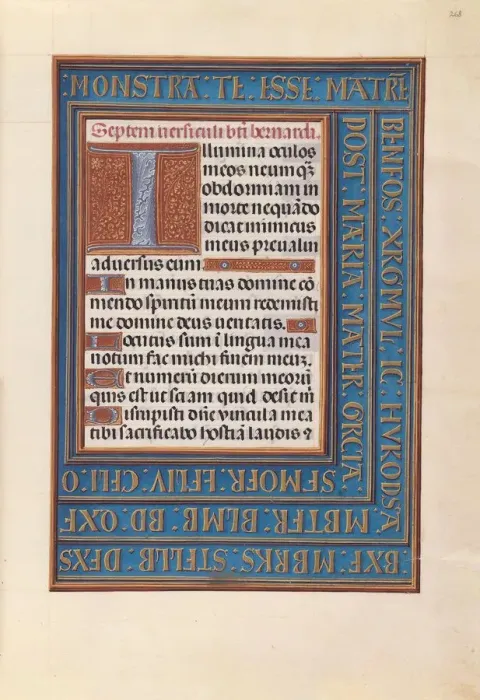 268
:MONSTRA:TE:ESSE:MATRĒ
Septem uersiculi bti bernardi.
Illumina oculos
meos ne umq̃
obdormiam in
morte nequãdo
dicat inimicus
meus preualui
aduersus eum.
In manus tuas domine cõ
mendo spiritũ meum redemisti
me domine deus ueritatis.
Locutus sum ĩ lingua mea
notum fac michi finem meuʒ.
Et numerũ dierum meorũ
quis est ut sciam quid desit m̃
Dirupisti dñe uincula mea
tibi sacrificabo hostiã laudis ⁊
POST:MARIA:MATER:GRCIA
SFMOFR:LFLIV:CFLI:O
BFNFOS:XRGMVL:IC:HVKODSA
MBTFR:BLMB:BD:QXF
BXF:MBRKS:STFLLB:DFXS